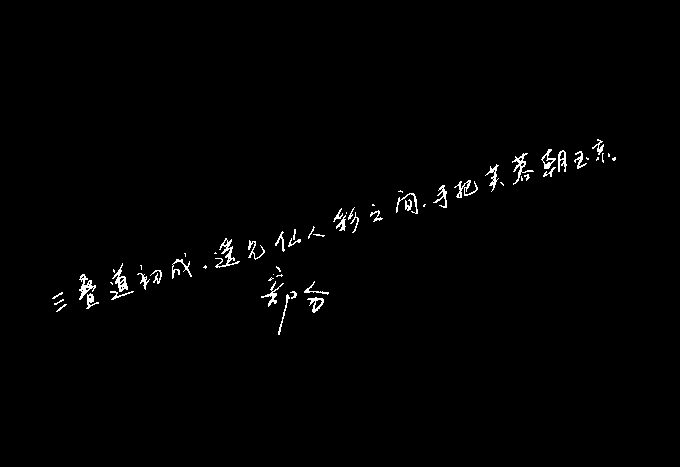 三叠道初成.遥见仙人彩之间.手把芙蓉朝玉京.
部分